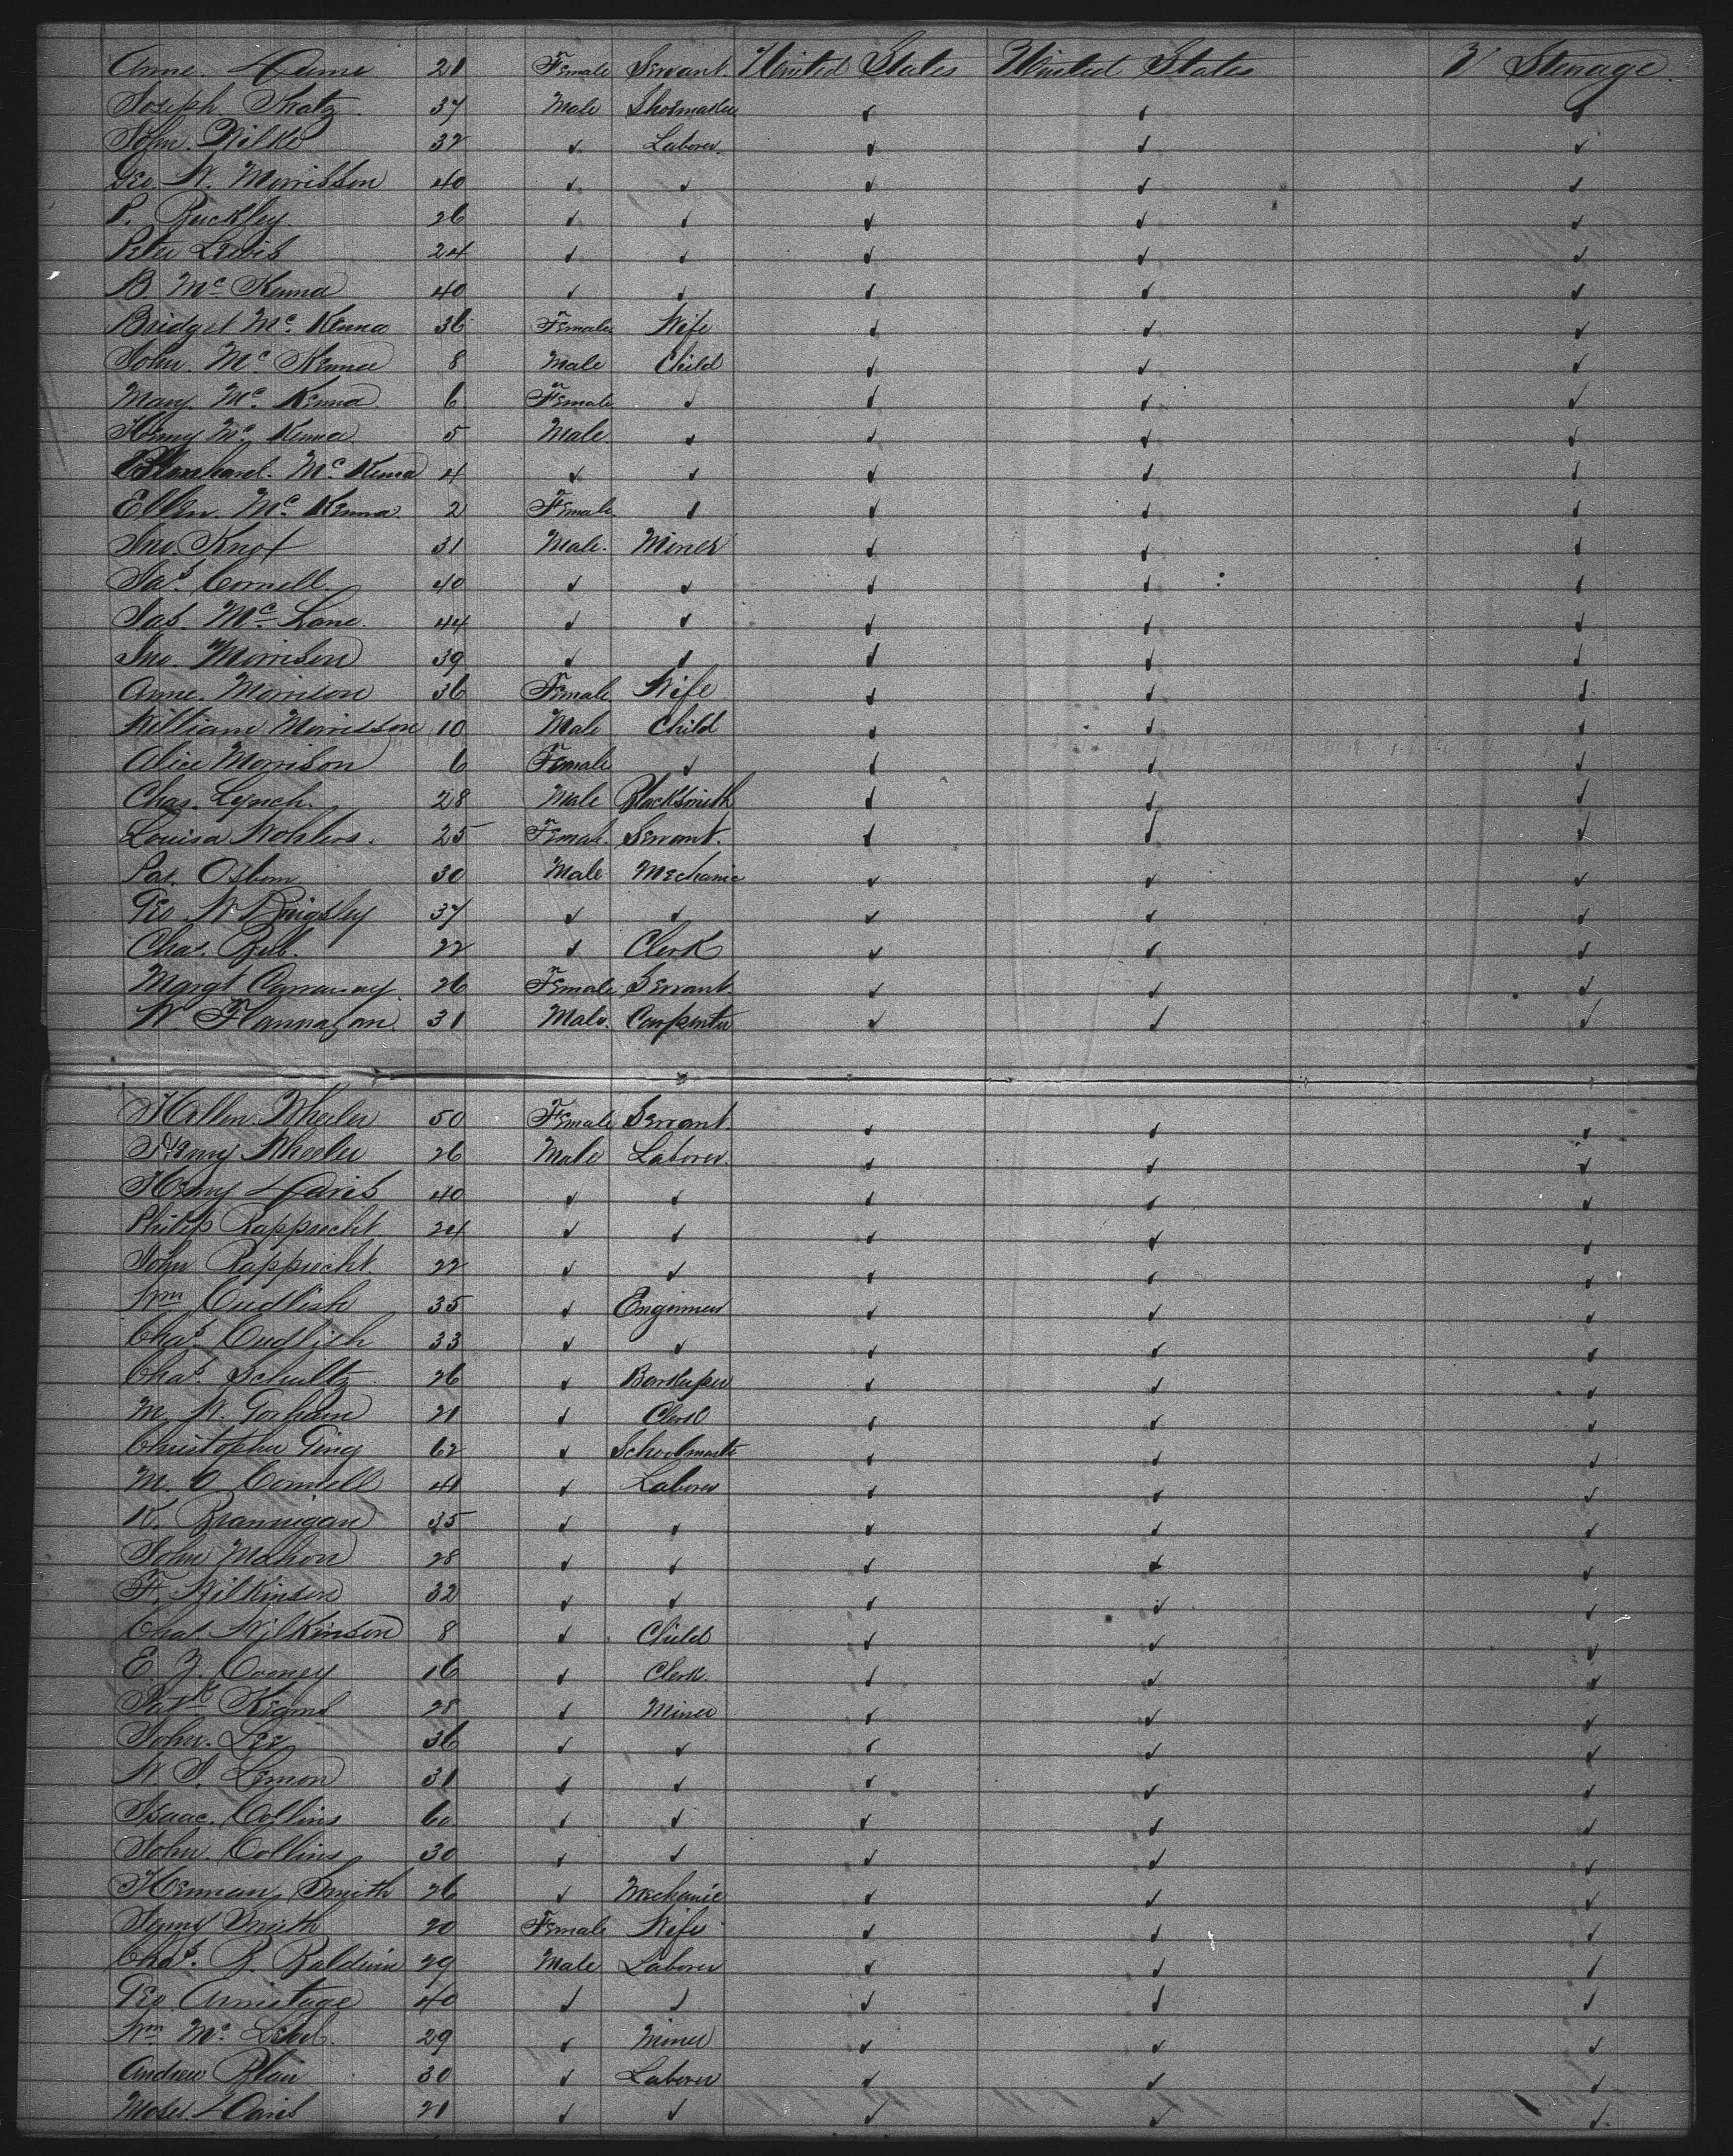 Anne 21 Female Servant. United States United States V Steerage.
Joseph Katz 37 Male Shoemaker ✓ ✓ ✓
John Wilke 32 ✓ Laborer. ✓ ✓ ✓
Geo. W. Morrisson 40 ✓ ✓ ✓ ✓ ✓
P. Buckley 26 ✓ ✓ ✓ ✓ ✓
Peter Lewis 24 ✓ ✓ ✓ ✓ ✓
B. Mc Kenna 40 ✓ ✓ ✓ ✓ ✓
Bridget Mc Kenna 36 Female Wife ✓ ✓ ✓
John. Mc Kenna 8 Male Child ✓ ✓ ✓
Mary. Mc Kenna 6 Female ✓ ✓ ✓ ✓
Henry Mc Kenna 5 Male ✓ ✓ ✓ ✓
Mc Kenna 4 ✓ ✓ ✓ ✓ ✓
Ellen. Mc Kenna. 2 Female ✓ ✓ ✓ ✓
Jno. Knox 31 Male. Miner ✓ ✓ ✓
Jas. Cornell 40 ✓ ✓ ✓ ✓ ✓
Jas. Mc Lane. 44 ✓ ✓ ✓ ✓ ✓
Jno. Morrison 39 ✓ ✓ ✓ ✓ ✓
Anne. Morrison 36 Female Wife ✓ ✓ ✓
William Morrisson 10 Male Child ✓ ✓ ✓
Alice Morrison 6 Female ✓ ✓ ✓ ✓
Chas. Lynch. 28 Male Blacksmith ✓ ✓ ✓
Louisa Wohlers. 25 Female. Servant. ✓ ✓ ✓
Pat. Osborn 30 Male Mechanic ✓ ✓ ✓
Geo W 37 ✓ ✓ ✓ ✓ ✓
Chas. Bell. 22 ✓ Clerk ✓ ✓ ✓
Margt Carraway 26 Female Servant ✓ ✓ ✓
W. Flannagan. 31 Male. Carpenter ✓ ✓ ✓
Hellen Wheeler 50 Female Servant. ✓ ✓ ✓
Henry Wheeler 26 Male Laborer. ✓ ✓ ✓
Henry Davis 40 ✓ ✓ ✓ ✓ ✓
Philip Rapprecht 24 ✓ ✓ ✓ ✓ ✓
John Rapprecht. 22 ✓ ✓ ✓ ✓ ✓
Wm Cudlish 35 ✓ Engineer ✓ ✓ ✓
Chas. Cudlish 33 ✓ ✓ ✓ ✓ ✓
Chas. Schultz 26 ✓ Barkeeper ✓ ✓ ✓
M. W. Gorham 21 ✓ Clerk ✓ ✓ ✓
Christopher Ting 62 ✓ Schoolmaste ✓ ✓ ✓
M. O. Connell 41 ✓ Laborer ✓ ✓ ✓
K. Brannigan 35 ✓ ✓ ✓ ✓ ✓
John Mahon 28 ✓ ✓ ✓ ✓ ✓
F. Wilkinson 32 ✓ ✓ ✓ ✓ ✓
Chas. Wilkinson 8 ✓ Child ✓ ✓ ✓
E. J. Cooney 16 ✓ Clerk. ✓ ✓ ✓
Patk 28 ✓ Miner ✓ ✓ ✓
John. Lee 36 ✓ ✓ ✓ ✓ ✓
W. J. Lemon 31 ✓ ✓ ✓ ✓ ✓
Isaac. Collins 60 ✓ ✓ ✓ ✓ ✓
John. Collins 30 ✓ ✓ ✓ ✓ ✓
Herman. Smith 26 ✓ Mechanic ✓ ✓ ✓
Jenny Smith 20 Female Wife ✓ ✓ ✓
Chas. B. Baldwin 29 Male Laborer ✓ ✓ ✓
Geo. Armitage 40 ✓ ✓ ✓ ✓ ✓
Wm Mc 29 ✓ Miner ✓ ✓ ✓
Andrew Blair 30 ✓ Laborer ✓ ✓ ✓
Moses. Davis 21 ✓ ✓ ✓ ✓ ✓